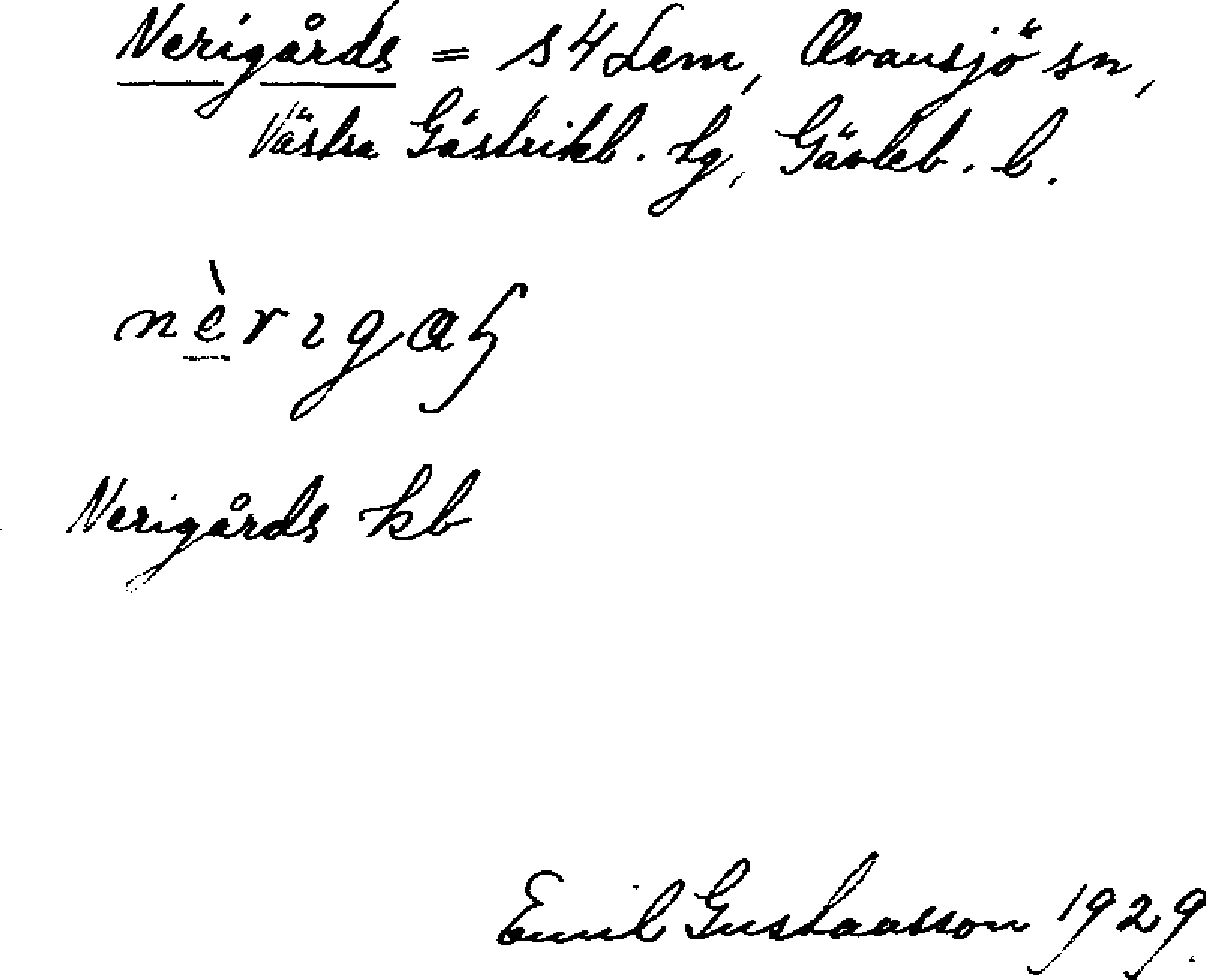 Nerigårds = s 4 Lem, Ovansjö sn,
Västra Gästrikl. tg, Gävleb. l.
nèrıga
Nerigårds kb
Emil Gustavsson 1929.